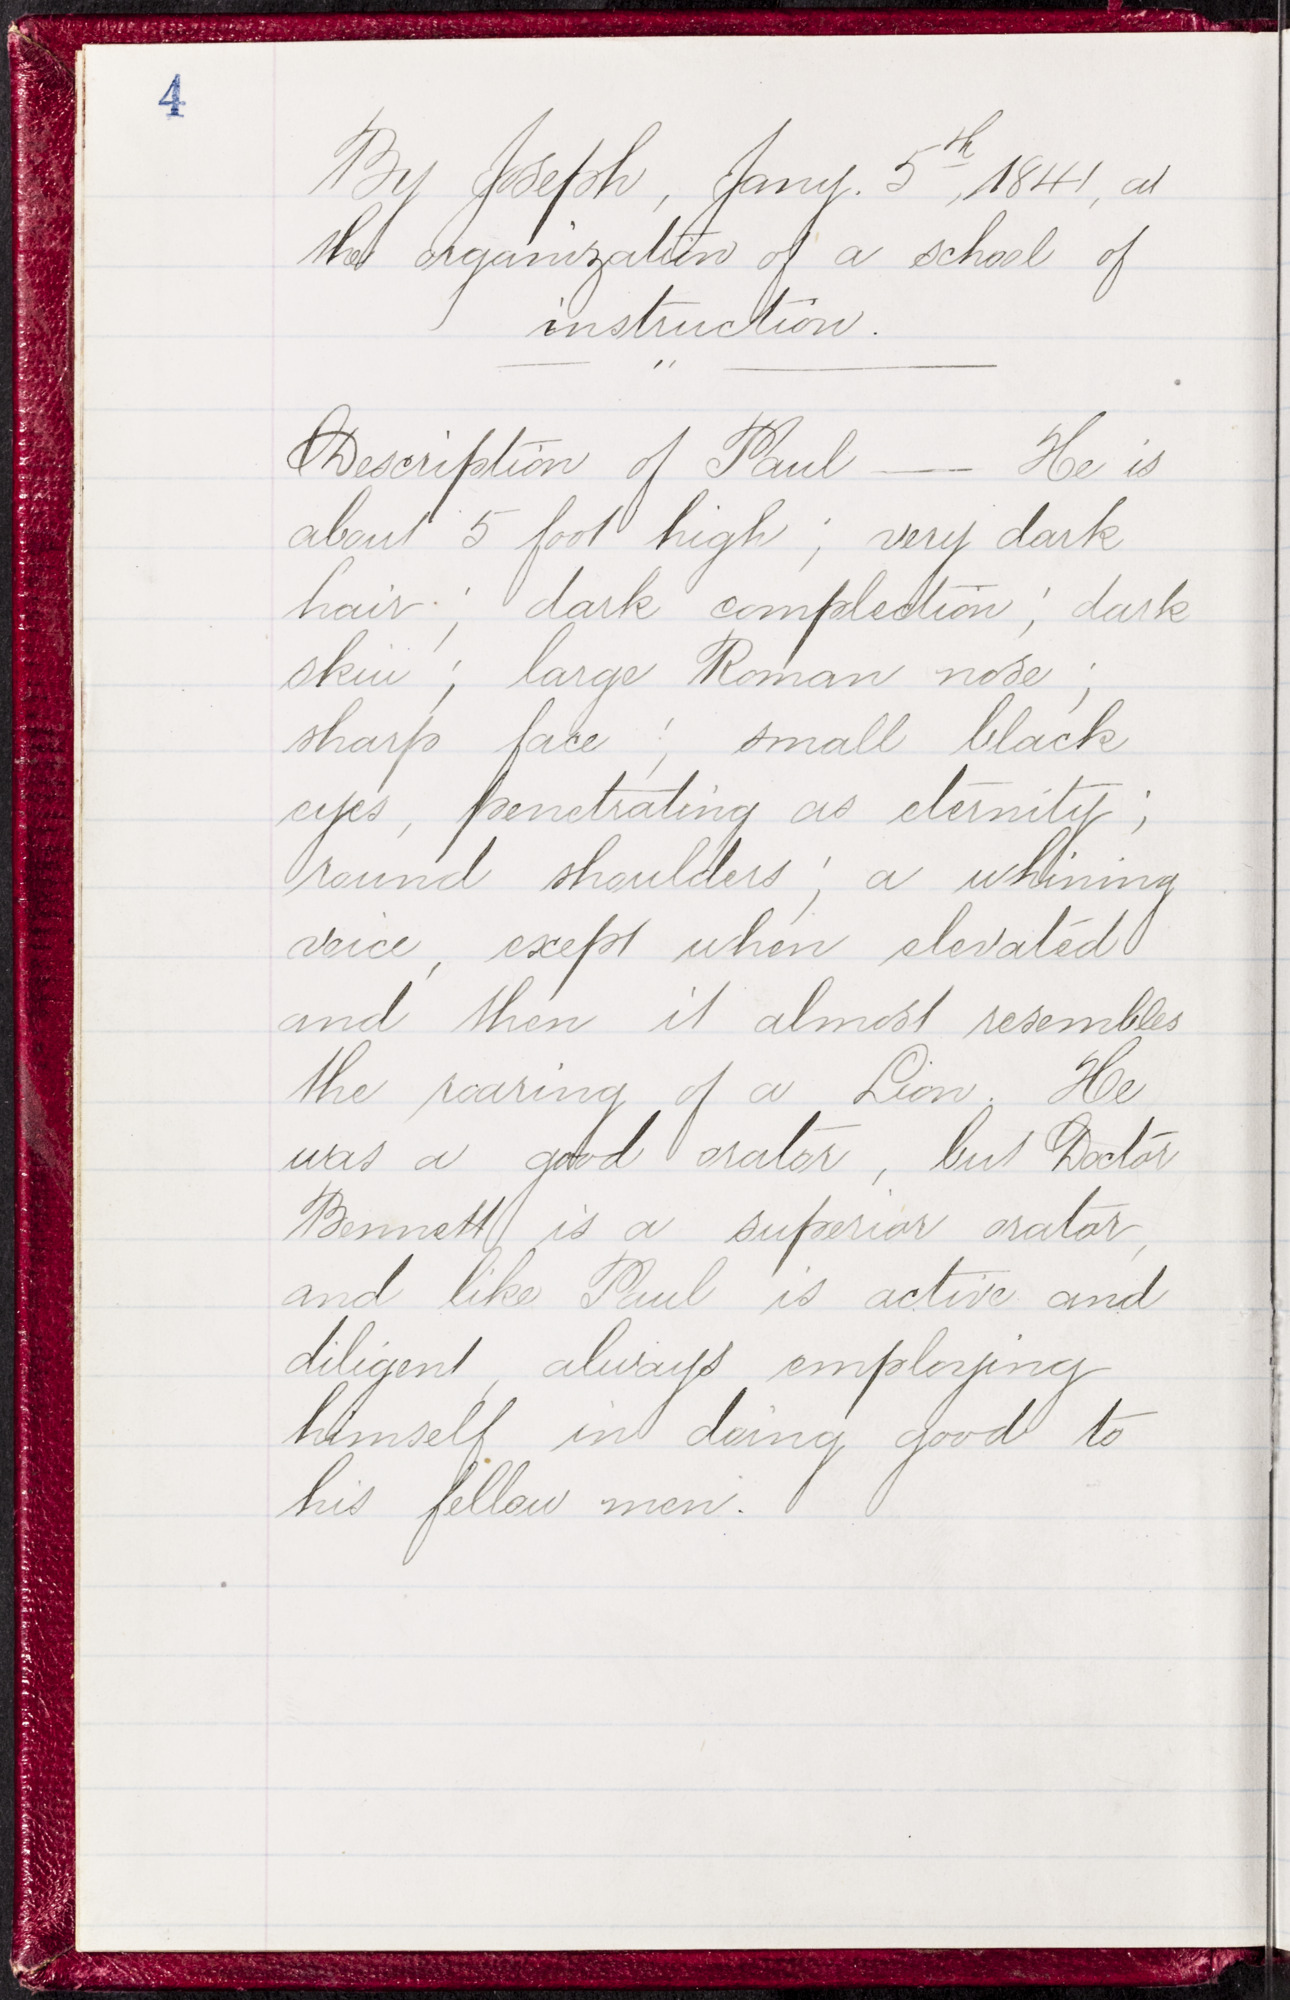 4
By Joseph, Jany. 5th, 1841, at
the organization of a school of
instruction.
— " ——
Description of Paul —— He is
about 5 foot high; very dark
hair; dark complection; dark
skin; large Roman nose;
sharp face; small black
eyes, penetrating as eternity;
round shoulders; a whining
voice, except when elevated
and then it almost resembles
the roaring of a Lion. He
was a good orator, but Doctor
Bennett is a superior orator,
and like Paul is active and
diligent, always employing
himself in doing good to
his fellow men.